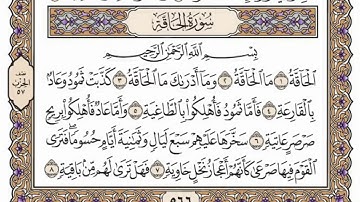 سُورَةُ الحَاقَّةِ
بِسْمِ اللَّهِ الرَّحْمَٰنِ الرَّحِيمِ
الْحَاقَّةُ ١ مَا الْحَاقَّةُ ٢ وَمَا أَدْرَىٰكَ مَا الْحَاقَّةُ ٣ كَذَّبَتْ ثَمُودُ وَعَادٌۢ
بِالْقَارِعَةِ ٤ فَأَمَّا ثَمُودُ فَأُهْلِكُوا۟ بِالطَّاغِيَةِ ٥ وَأَمَّا عَادٌ فَأُهْلِكُوا۟ بِرِيحٍ
صَرْصَرٍ عَاتِيَةٍ ٦ سَخَّرَهَا عَلَيْهِمْ سَبْعَ لَيَالٍ وَثَمَٰنِيَةَ أَيَّامٍ حُسُومًا فَتَرَى
الْقَوْمَ فِيهَا صَرْعَىٰ كَأَنَّهُمْ أَعْجَازُ نَخْلٍ خَاوِيَةٍ ٧ فَهَلْ تَرَىٰ لَهُم مِّنۢ بَاقِيَةٍ ٨
نصف
الحزب
٥٧
٥٦٦